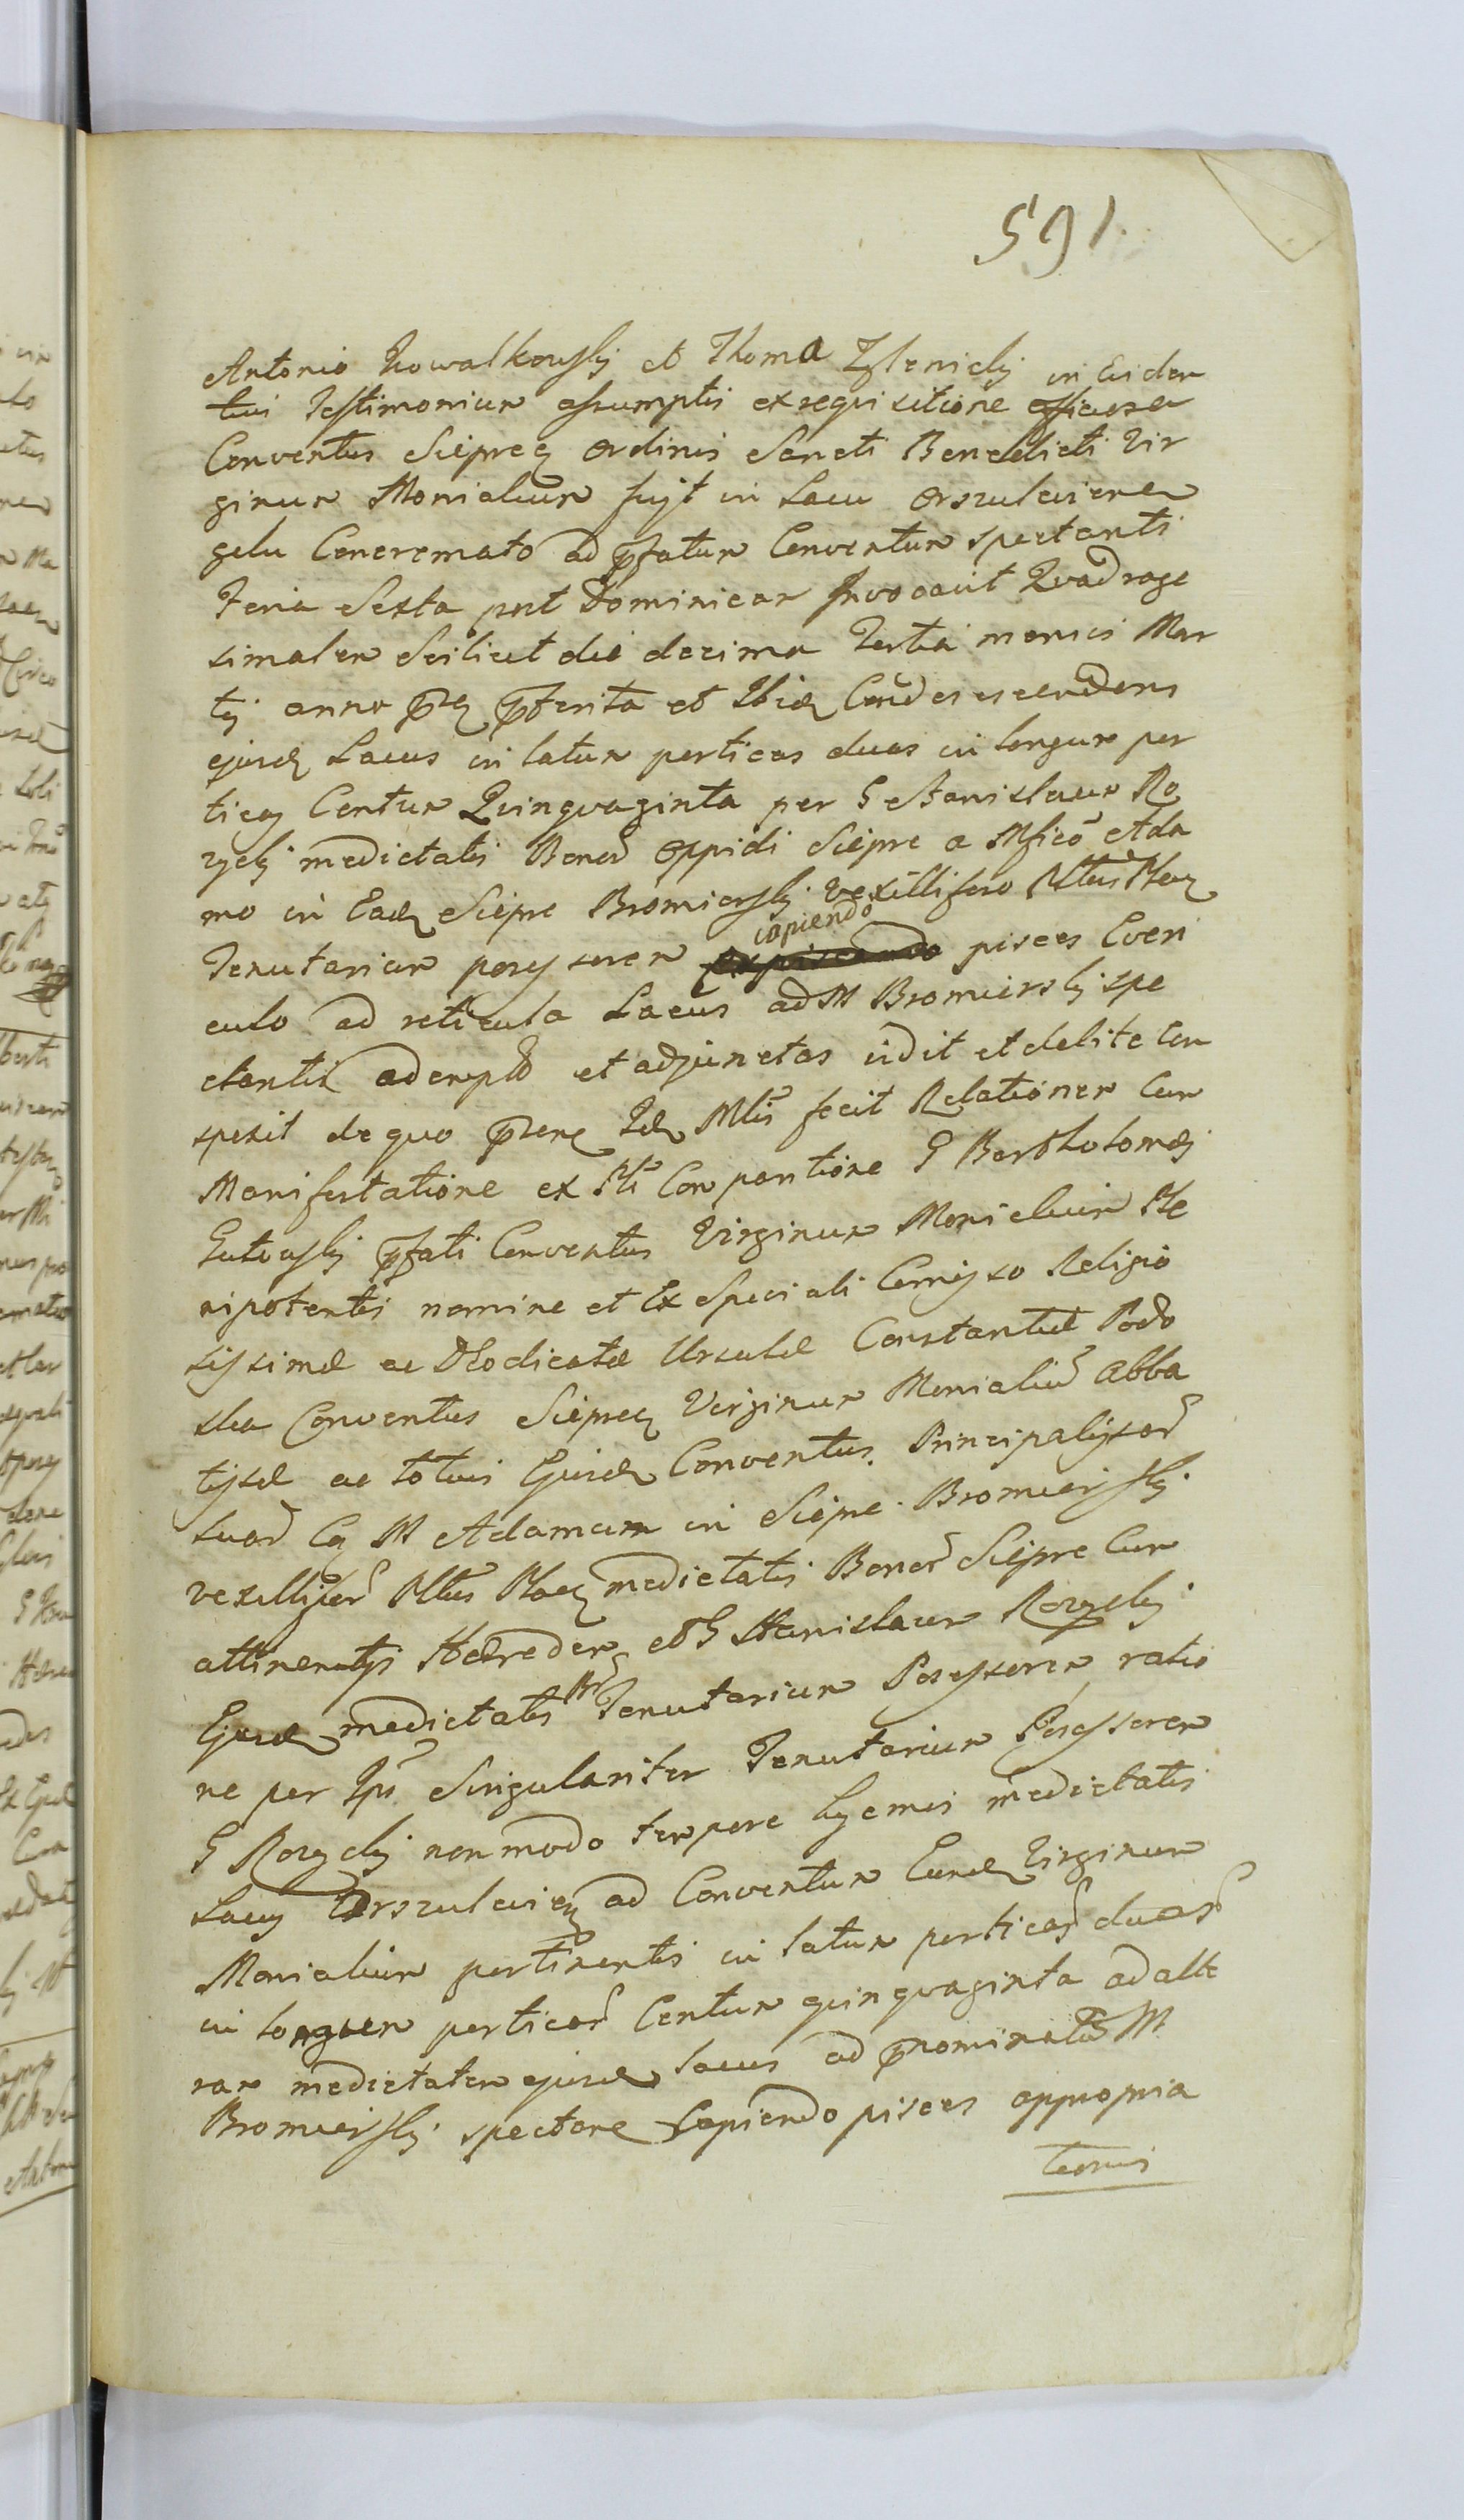 591.
Antonio Kowalkowskj et Thoma Zglenickj in Eviden
tius Testimonium assumptis ex requisitione officiosa
Conventus Sieprcens Ordinis Sancti Benedicti Vir
ginum Monialium fuit in Lacu Orszulewiensi
gelu Concremato ad pfatum Conventum spectanti
Feria Sexta post Dominicam Invocavit Quadrage
simalem Scilicet die decima Tertia mensis Mar
tij anno pnti pterita et Ibidem Condescendens
ejusdem Lacus in latum perticas duas in longum per
ticas Centum Quinquaginta per G Stanislaum Ro
zyckj medietatis Bonor Oppidi Sieprc a Mfico Ada
mo in Eadem Sieprc Bromierskj Vexillifero Pltus Plocen
Tenutarium possessorem capiendo pisces Everi
culo ad reticula Lacus ad M Bromierskj spe
ctantis et adjunctas vidit et debite con
spexit de quo psens Idem Mlis fecit Relationem Cum
Manifestatione ex Pti Comparitione G Bartholomæj
Gutowskj pfati Conventus Virginum Monialium Ple
nipotentis nomine et Ex Speciali Comisso Religio
sissimæ ac DEodicatæ Ursulæ Constantiæ Podo
ska Conventus Sieprcens Virginum Monialiu Abba
tissæ ac totius Ejusdem Conventus Principalissar
suar Cq M Adamum in Sieprc Bromierskj
vexillifer Pltus Plocens medietatis Bonor Sieprc Cum
attinentijs Hæredem et G Stanislaum Rozyckj
Ejusdem medietatis Tenutarium Possessorem ratio
ne per Ips Singulariter Tenutarium Possessorem
G Rozyckj non modo tempore hyemis medietatis
Lacus Orszulewiens ad Conventum Eundem Virginum
Monialium pertinentis in latum perticar duar
in longum perticar Centum quinquaginta ad alte
ram medietatem ejusdem lacus ad pnominatu M
Bromierskj spectare Capiendo pisces appropria
tionis